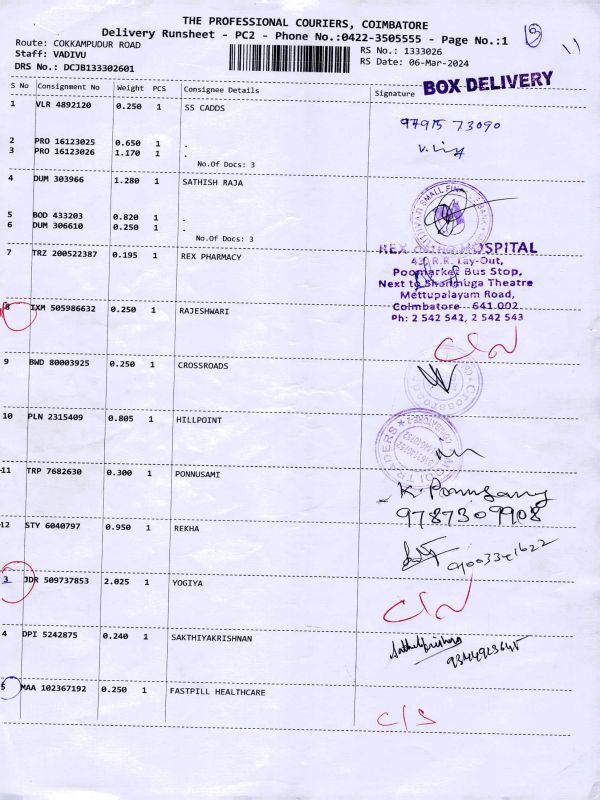 THE PROFESSIONAL COURIERS, COIMBATORE
Delivery Runsheet - PC2 - Phone No.:0422-3505555 - Page No.:1
Route: COKKAMPUDUR ROAD
Staff: VADIVU
DRS No.: DCJB133302601
RS No.: 1333026
RS Date: 06-Mar-2024
BOX DELIVERY
S No Consignment No Weight PCS Consignee Details Signature
1 VLR 4892120 0.250 1 SS CADDS
2 PRO 16123025 0.650 1 .
3 PRO 16123026 1.170 1 .
No.Of Docs: 3
4 DUM 303966 1.280 1 SATHISH RAJA
5 BOD 433203 0.820 1 .
6 DUM 306610 0.250 1 .
No.Of Docs: 3
7 TRZ 200522387 0.195 1 REX PHARMACY
HOSPITAL
43, R.R. Lay-Out,
Poomarket Bus Stop,
Next to Shanmuga Theatre
Mettupalayam Road,
Coimbatore - 641 002
Ph: 2 542 542, 2 542 543
8 IXM 505986632 0.250 1 RAJESHWARI
9 BWD 80003925 0.250 1 CROSSROADS
10 PLN 2315409 0.805 1 HILLPOINT
11 TRP 7682630 0.300 1 PONNUSAMI
K. Ponnusamy
9787309908
12 STY 6040797 0.950 1 REKHA
3 JDR 509737853 2.025 1 YOGIYA
4 DPI 5242875 0.240 1 SAKTHIYAKRISHNAN
5 MAA 102367192 0.250 1 FASTPILL HEALTHCARE
C/S